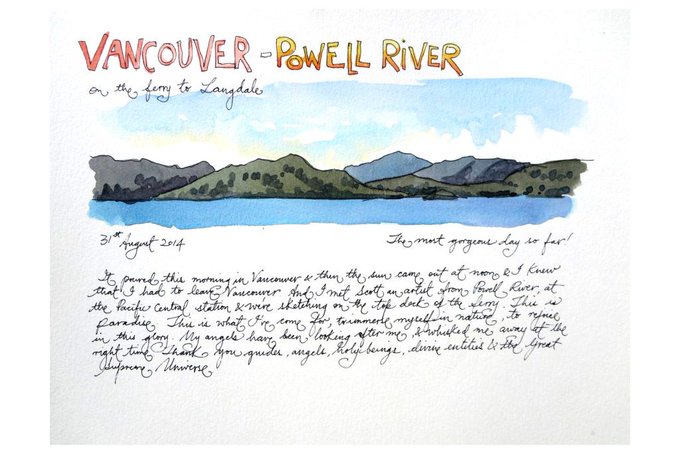 VANCOUVER - POWELL RIVER
on the ferry to Langdale
31st August 2014 The most gorgeous day so far!
It poured this morning in Vancouver & then the sun came out at noon & I knew
that I had to leave Vancouver And I met Scott an artist from Powell River, at
the Pacific Central station & we're sketching on the top deck of the ferry. This is
Paradise. This is what I've come for, to immerse myself in nature, to rejoice
in this glory. My angels have been looking after me & whisked me away at the
right time. Thank you guides, angels, holy beings, divine entities & the Great
Supreme Universe